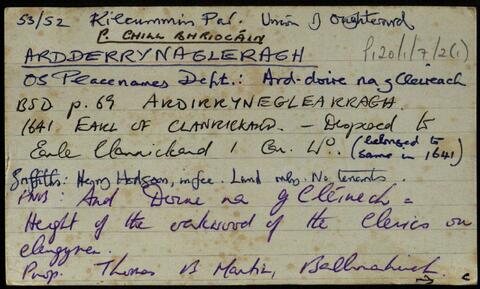 53/52 Kilcummin Par. Union of Oughterard
P. CHILL BHRIOCÁIN
P120/1/7/2(1)
ARDDERRYNAGLERAGH
OS Placenames Dept.: Ard-doire na gCleireach
BSD p. 69 ARDIRRYNEGLEARRAGH.
1641 EARL OF CLANRICKARD. — Disposed to
Earle Clanrickard 1 Con. (belonged to
same in 1641)
Griffiths: Henry Hodgson, in fee. Land only. No tenants.
PNB: Ard Doire na gCléirech =
Height of the oakwood of the Clerics or
clergymen.
Prop. Thomas B Martin,